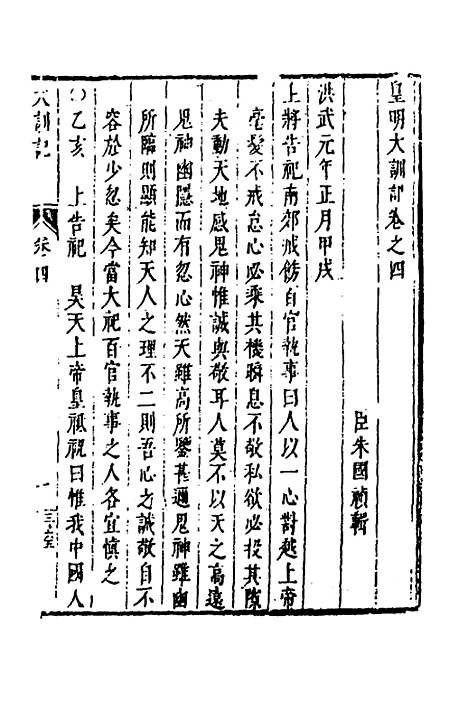 皇明大訓記卷之四
臣朱國禎輯
洪武元年正月甲戌
上將告祀南郊戒飭百官執事曰人以一心對越上帝
毫髮不戒怠心必乘其機瞬息不敬私欲必投其隙
夫動天地感鬼神惟誠與敬耳人莫不以天之高遠
鬼神幽隱而有忽心然天雖高所鑒甚邇鬼神雖幽
所臨則顯能知天人之理不二則吾心之誠敬自不
容於少忽矣今當大祀百官執事之人各宜慎之
○乙亥 上告祀 昊天上帝皇祇祝曰惟我中國人
大訓記 卷四 一